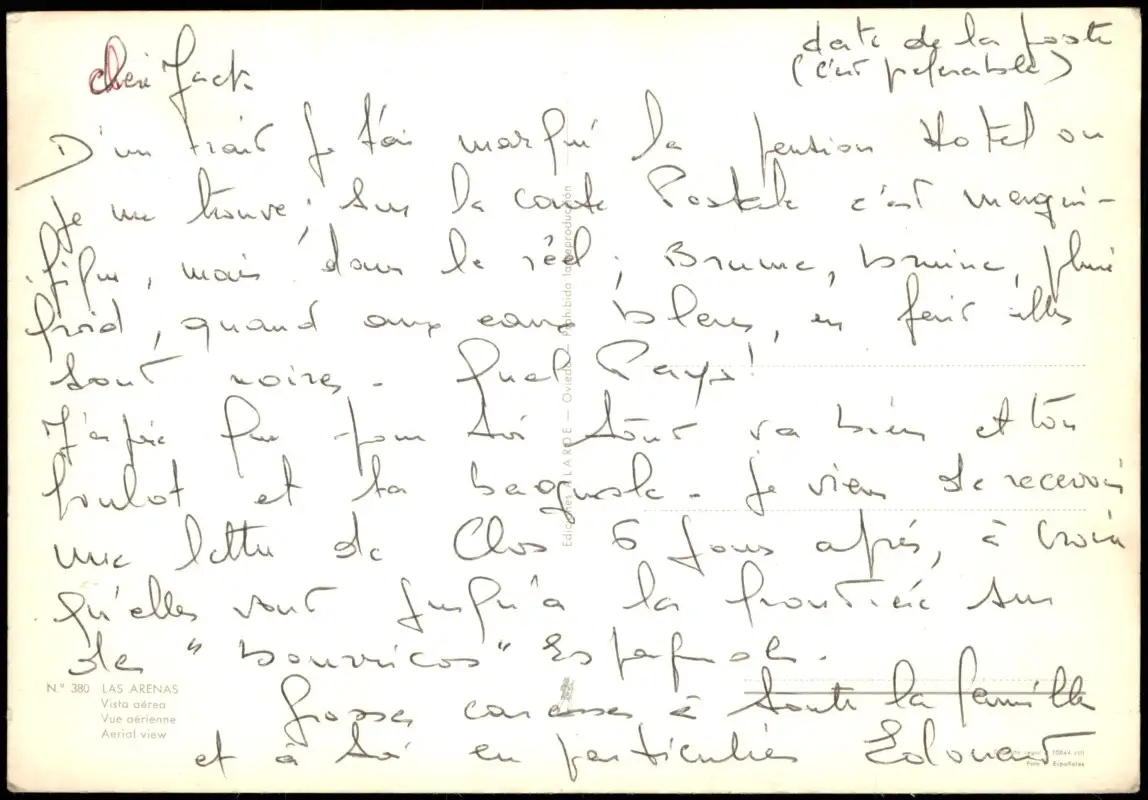 date de la poste
(c'est préférable)
Chéri Jack
D'un trait je t'ai marqué la pension Hotel ou
je me trouve. Sur la carte Postale c'est magni-
fique, mais dans le réel ; Brume, bruine, pluie
froid, quand aux eaux bleus, en fait elles
sont noires. Quel Pays!
J'espère que pour toi tout va bien et ton
boulot et ta bagnole. Je viens de recevoir
une lettre de Clos 6 jours après, à croire
qu'elles vont jusqu'a la frontière sur
des "bourricos" Espagnols.
Grosses caresses à toute la famille
et à toi en particuliés Edouard
N.º 380 LAS ARENAS
Vista aérea
Vue aérienne
Aerial view
Ediciones ALARDE — Oviedo — Prohibida la reproducción